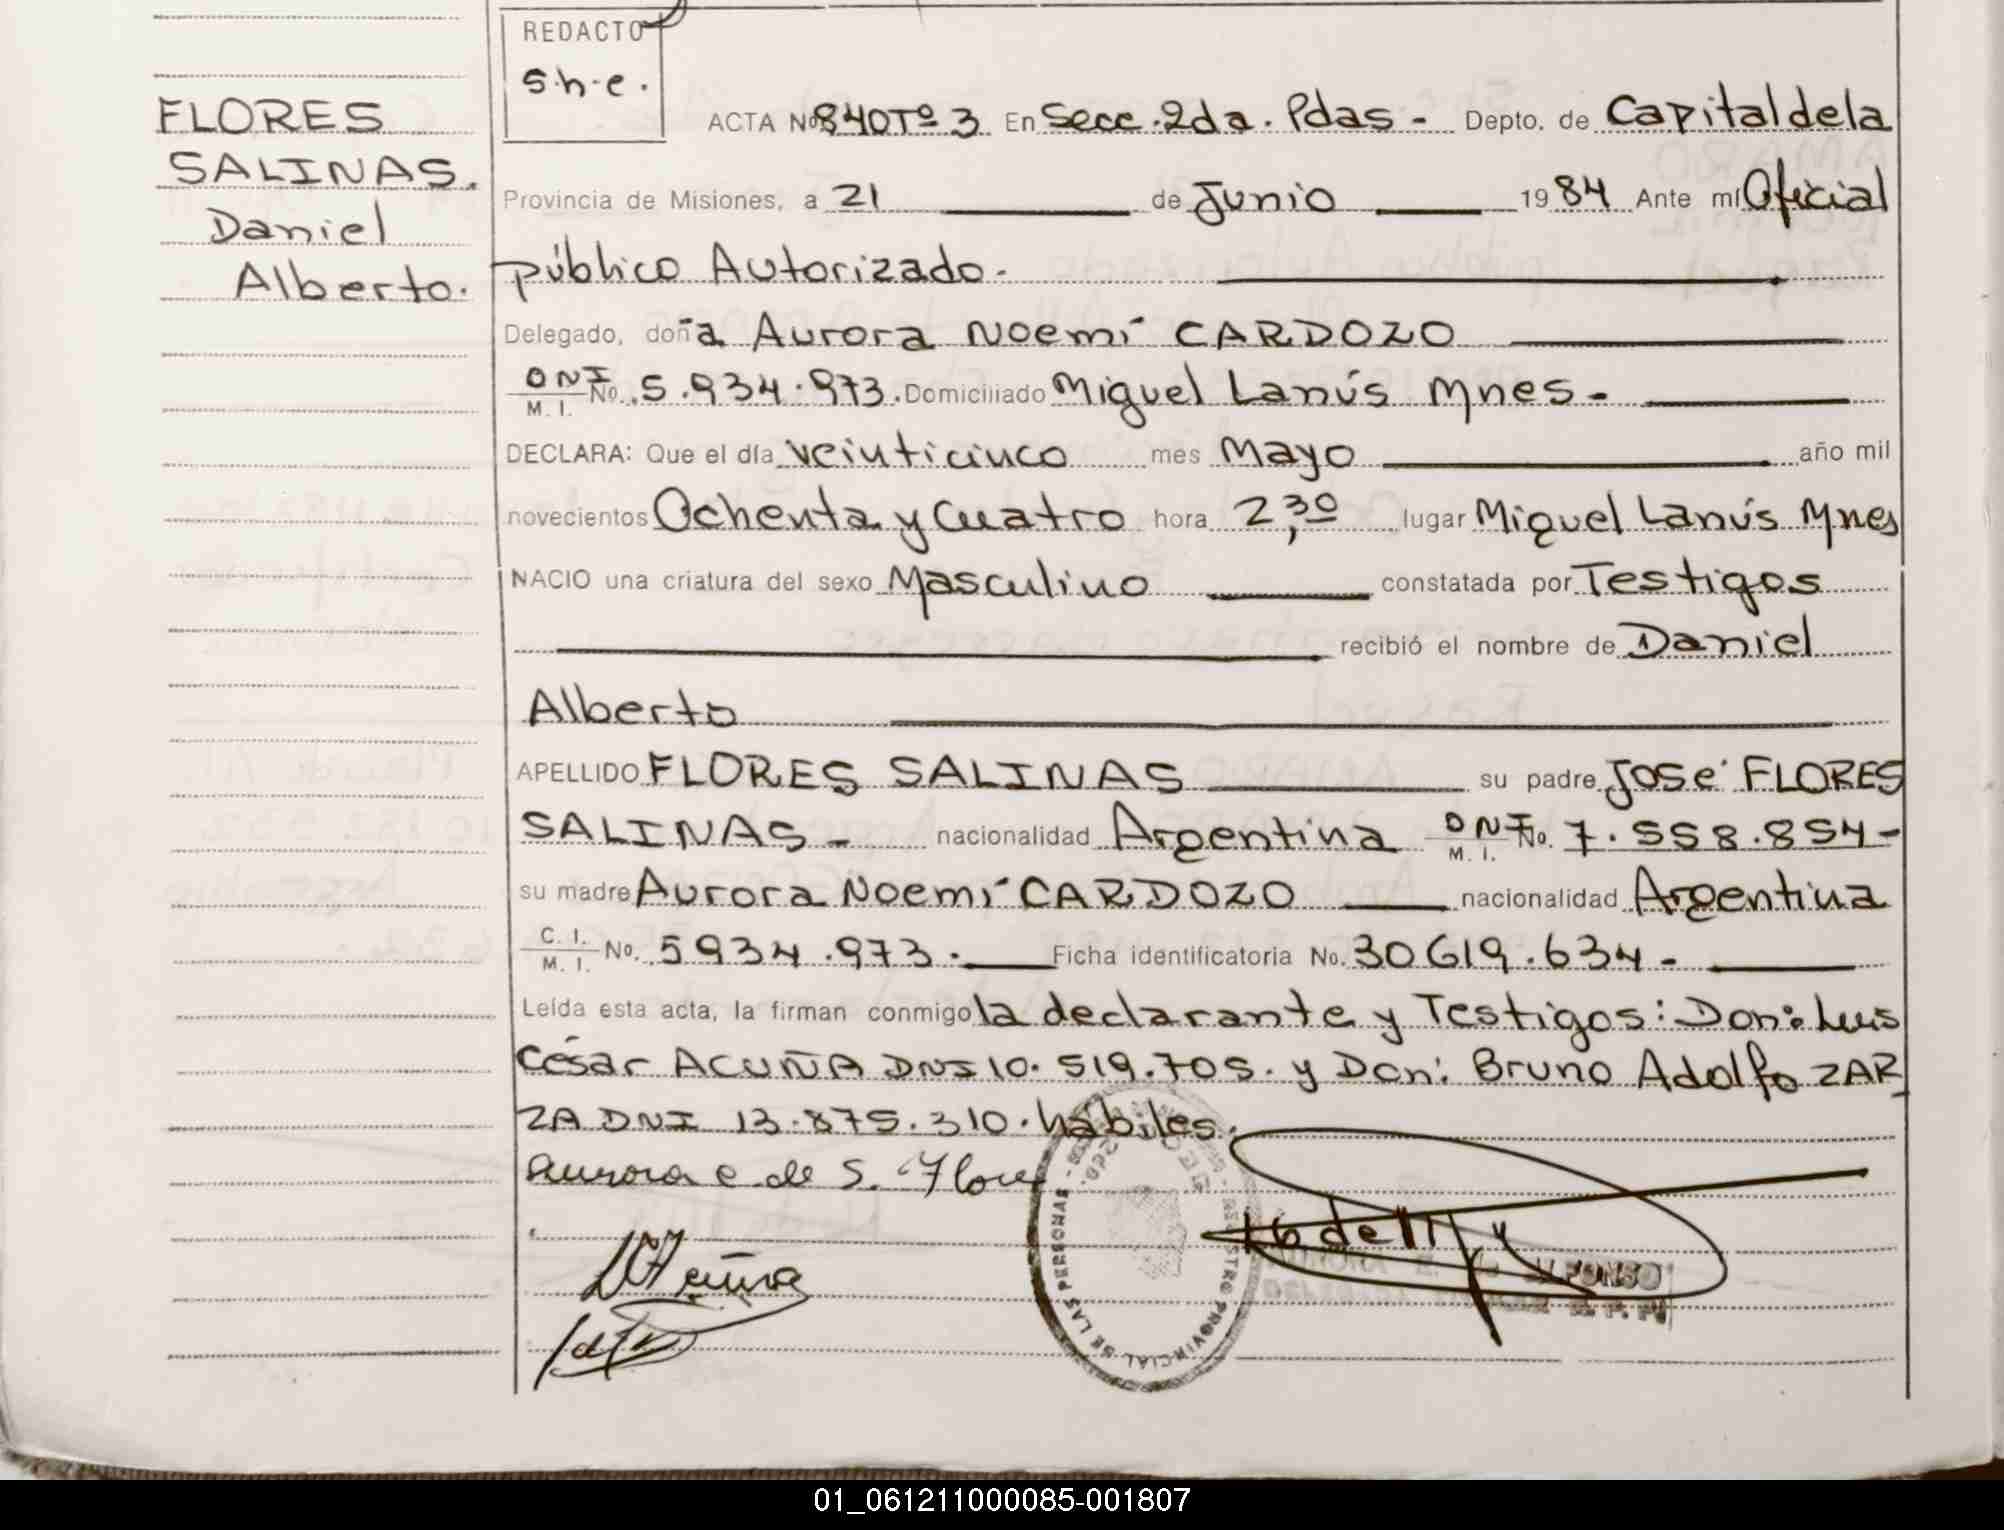 REDACTO
s.h.e.
FLORES
SALINAS.
Daniel
Alberto.
ACTA Nº 840 Tº 3 En Secc. 2da. Pdas - Depto. de Capital de la
Provincia de Misiones, a 21 de Junio 1984 Ante mí Oficial
público Autorizado.
Delegado, doña Aurora Noemí CARDOZO
DNI M. I. No. 5.934.973. Domiciliado Miguel Lanús Mnes -
DECLARA: Que el día veinticinco mes Mayo año mil
novecientos Ochenta y Cuatro hora 2,30 lugar Miguel Lanús Mnes
NACIO una criatura del sexo Masculino constatada por Testigos
recibió el nombre de Daniel
Alberto
APELLIDO FLORES SALINAS su padre José FLORES
SALINAS - nacionalidad Argentina DNI M. I. No. 7.558.854-
su madre Aurora Noemí CARDOZO nacionalidad Argentina
C. I. M. I. No. 5934.973. Ficha identificatoria No. 30619.634-
Leída esta acta, la firman conmigo la declarante y Testigos: Don: Luis
César ACUÑA DNI 10.519.705. y Don: Bruno Adolfo ZAR
ZA DNI 13.875.310. hábiles.
Aurora C. de S. Flores
REGISTRO PROVINCIAL DE LAS PERSONAS
ALFONSO
01_061211000085-001807